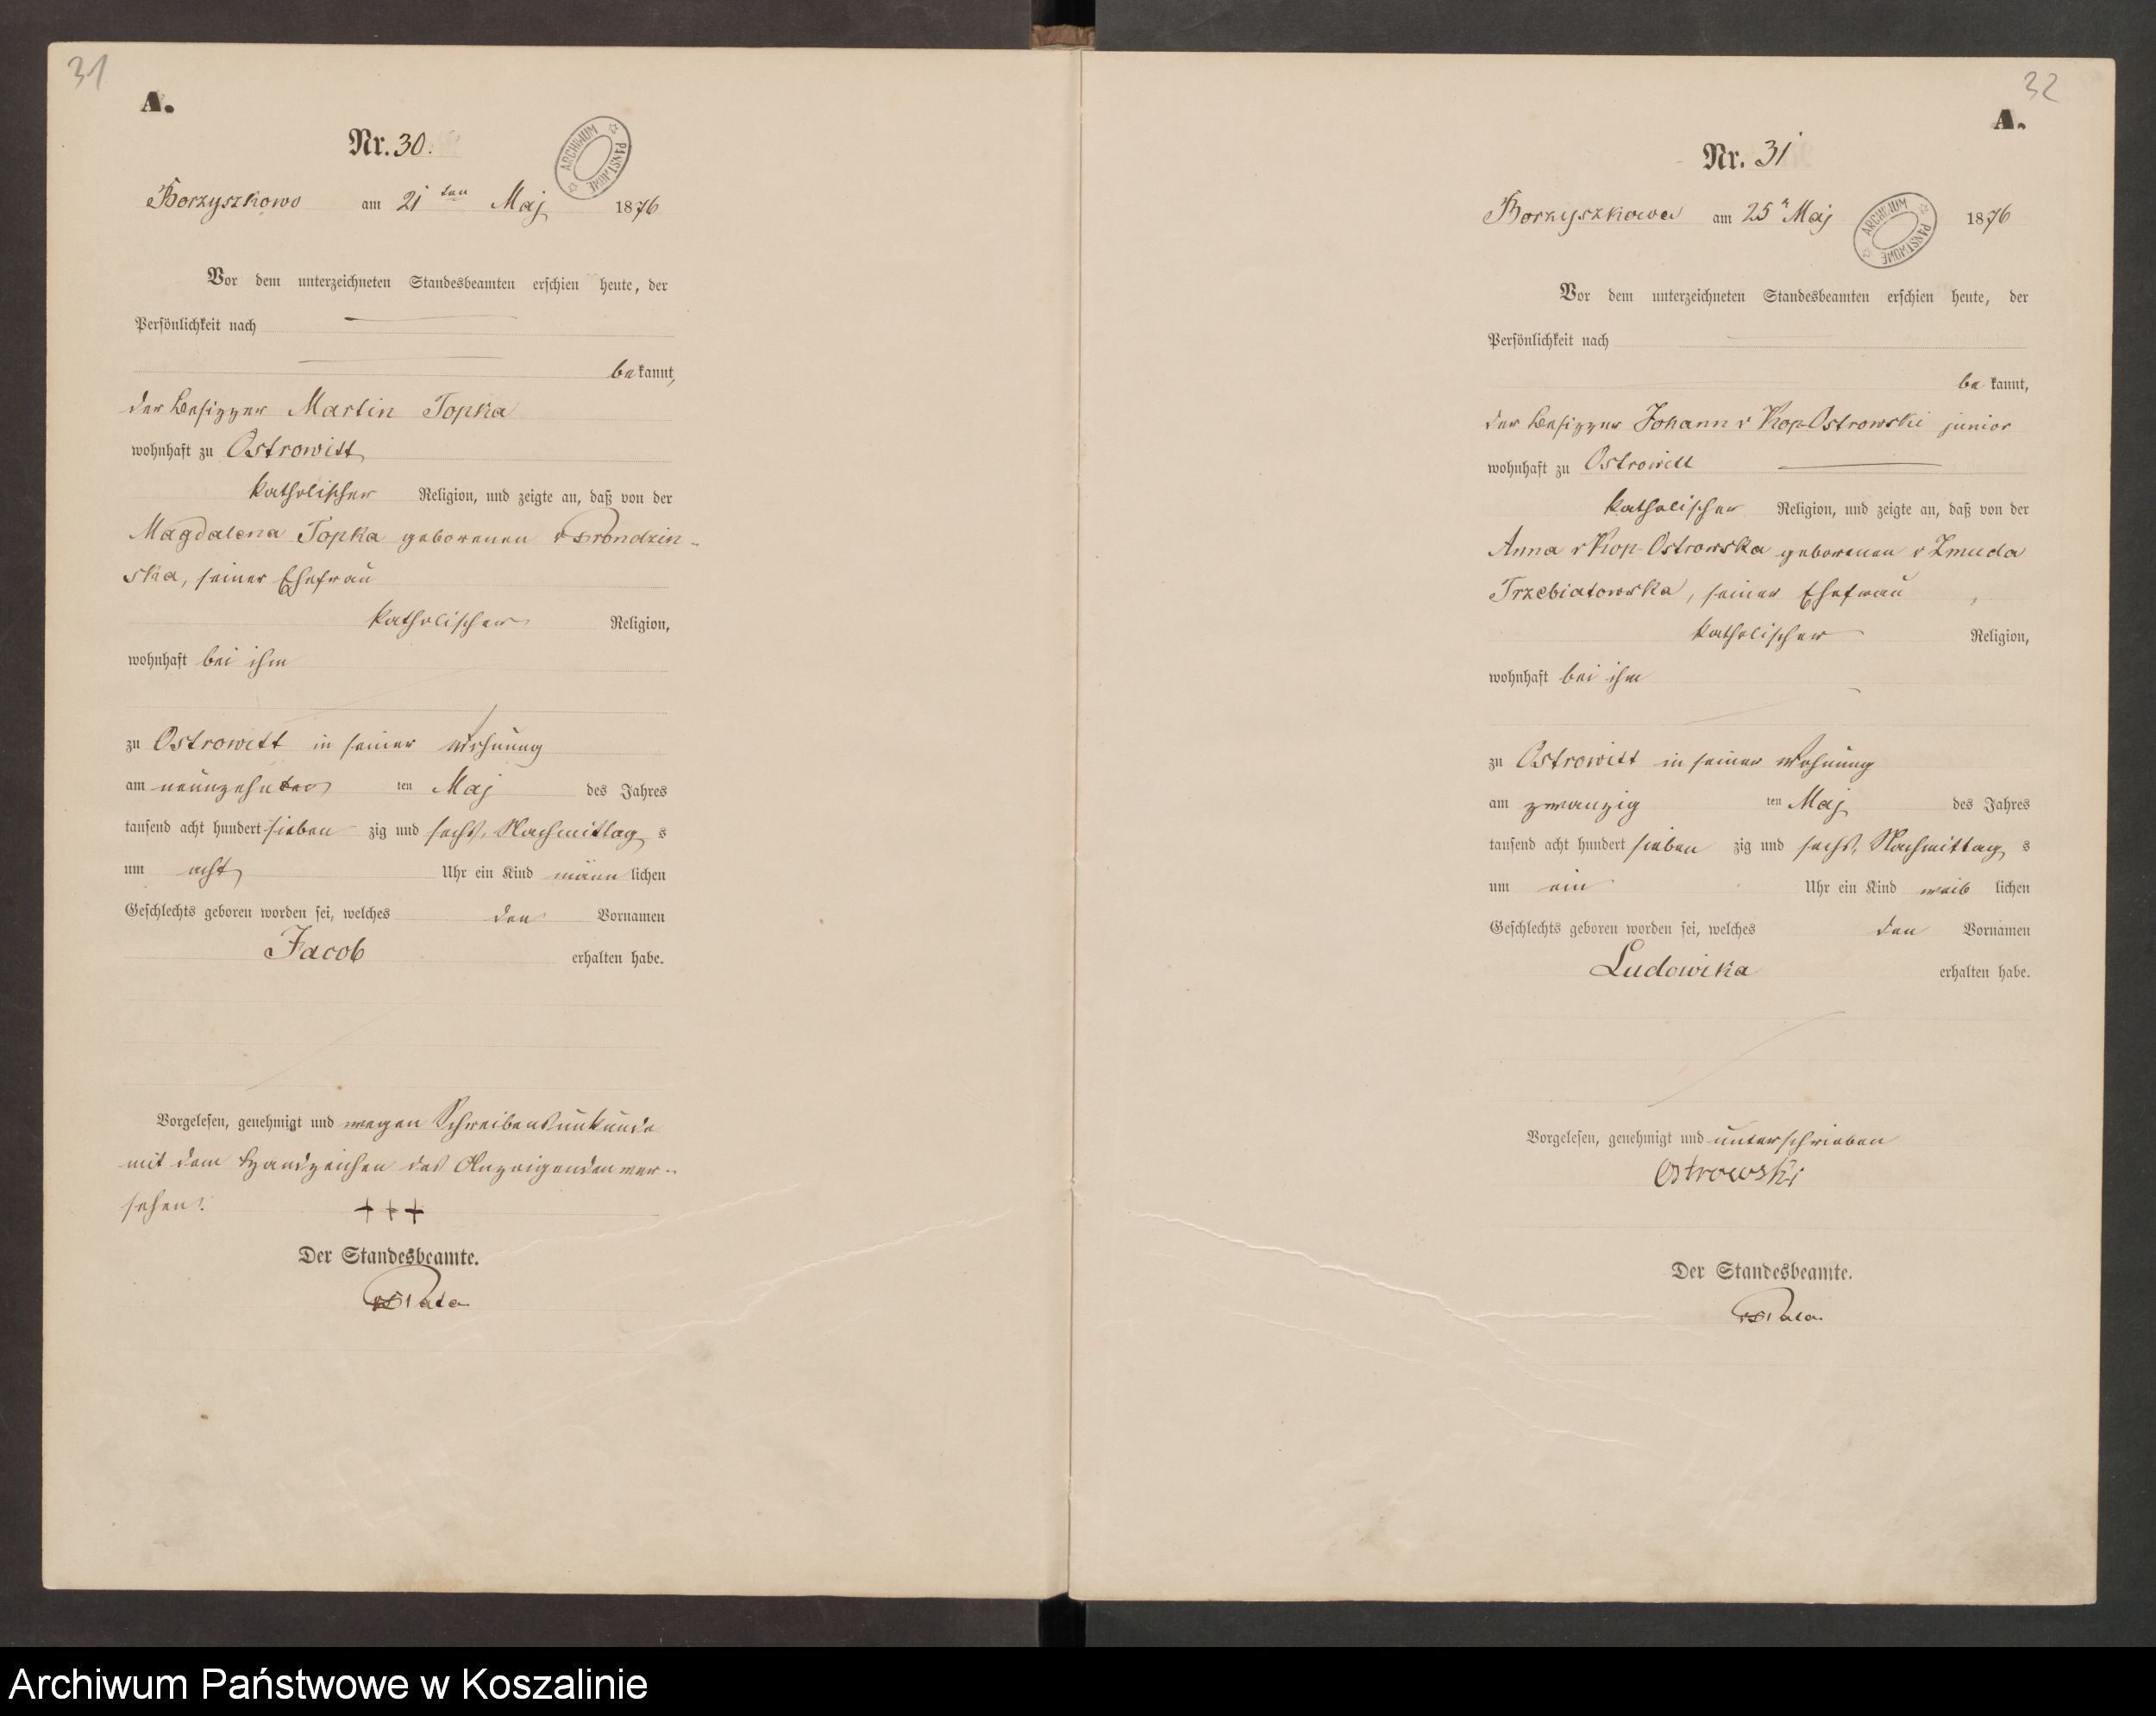 31
A.
Nr. 30.
ARCHIWUM PAŃSTWOWE
Borzyszkowo am 21ten Maj 1876
Vor dem unterzeichneten Standesbeamten erschien heute, der
Persönlichkeit nach
bekannt,
der Besitzer Martin Topka
wohnhaft zu Ostrowitt
katholischer Religion, und zeigte an, daß von der
Magdalena Topka geborenen v Prondzin-
ska, seiner Ehefrau
katholischer Religion,
wohnhaft bei ihm
zu Ostrowitt in seiner Wohnung
am neunzehnten ten Maj des Jahres
tausend acht hundert sieben zig und sechs, Nachmittag s
um acht Uhr ein Kind männ lichen
Geschlechts geboren worden sei, welches den Vornamen
Jacob erhalten habe.
Vorgelesen, genehmigt und wegen Schreibensunkunde
mit dem Handzeichen des Anzeigenden ver-
sehen.
+++
Der Standesbeamte.
32
A.
Nr. 31
ARCHIWUM PAŃSTWOWE
Borzyszkowo am 25n Maj 1876
Vor dem unterzeichneten Standesbeamten erschien heute, der
Persönlichkeit nach
be kannt,
der Besitzer Johann v Kop-Ostrowski junior
wohnhaft zu Ostrowitt
katholischer Religion, und zeigte an, daß von der
Anna v Kop-Ostrowska geborenen v Zmuda
Trzebiatowska, seiner Ehefrau,
katholischer Religion,
wohnhaft bei ihm
zu Ostrowitt in seiner Wohnung
am zwanzig ten Maj des Jahres
tausend acht hundert sieben zig und sechs, Nachmittag s
um ein Uhr ein Kind weib lichen
Geschlechts geboren worden sei, welches den Vornamen
Ludowika erhalten habe.
Vorgelesen, genehmigt und unterschrieben
Ostrowski
Der Standesbeamte.
Archiwum Państwowe w Koszalinie